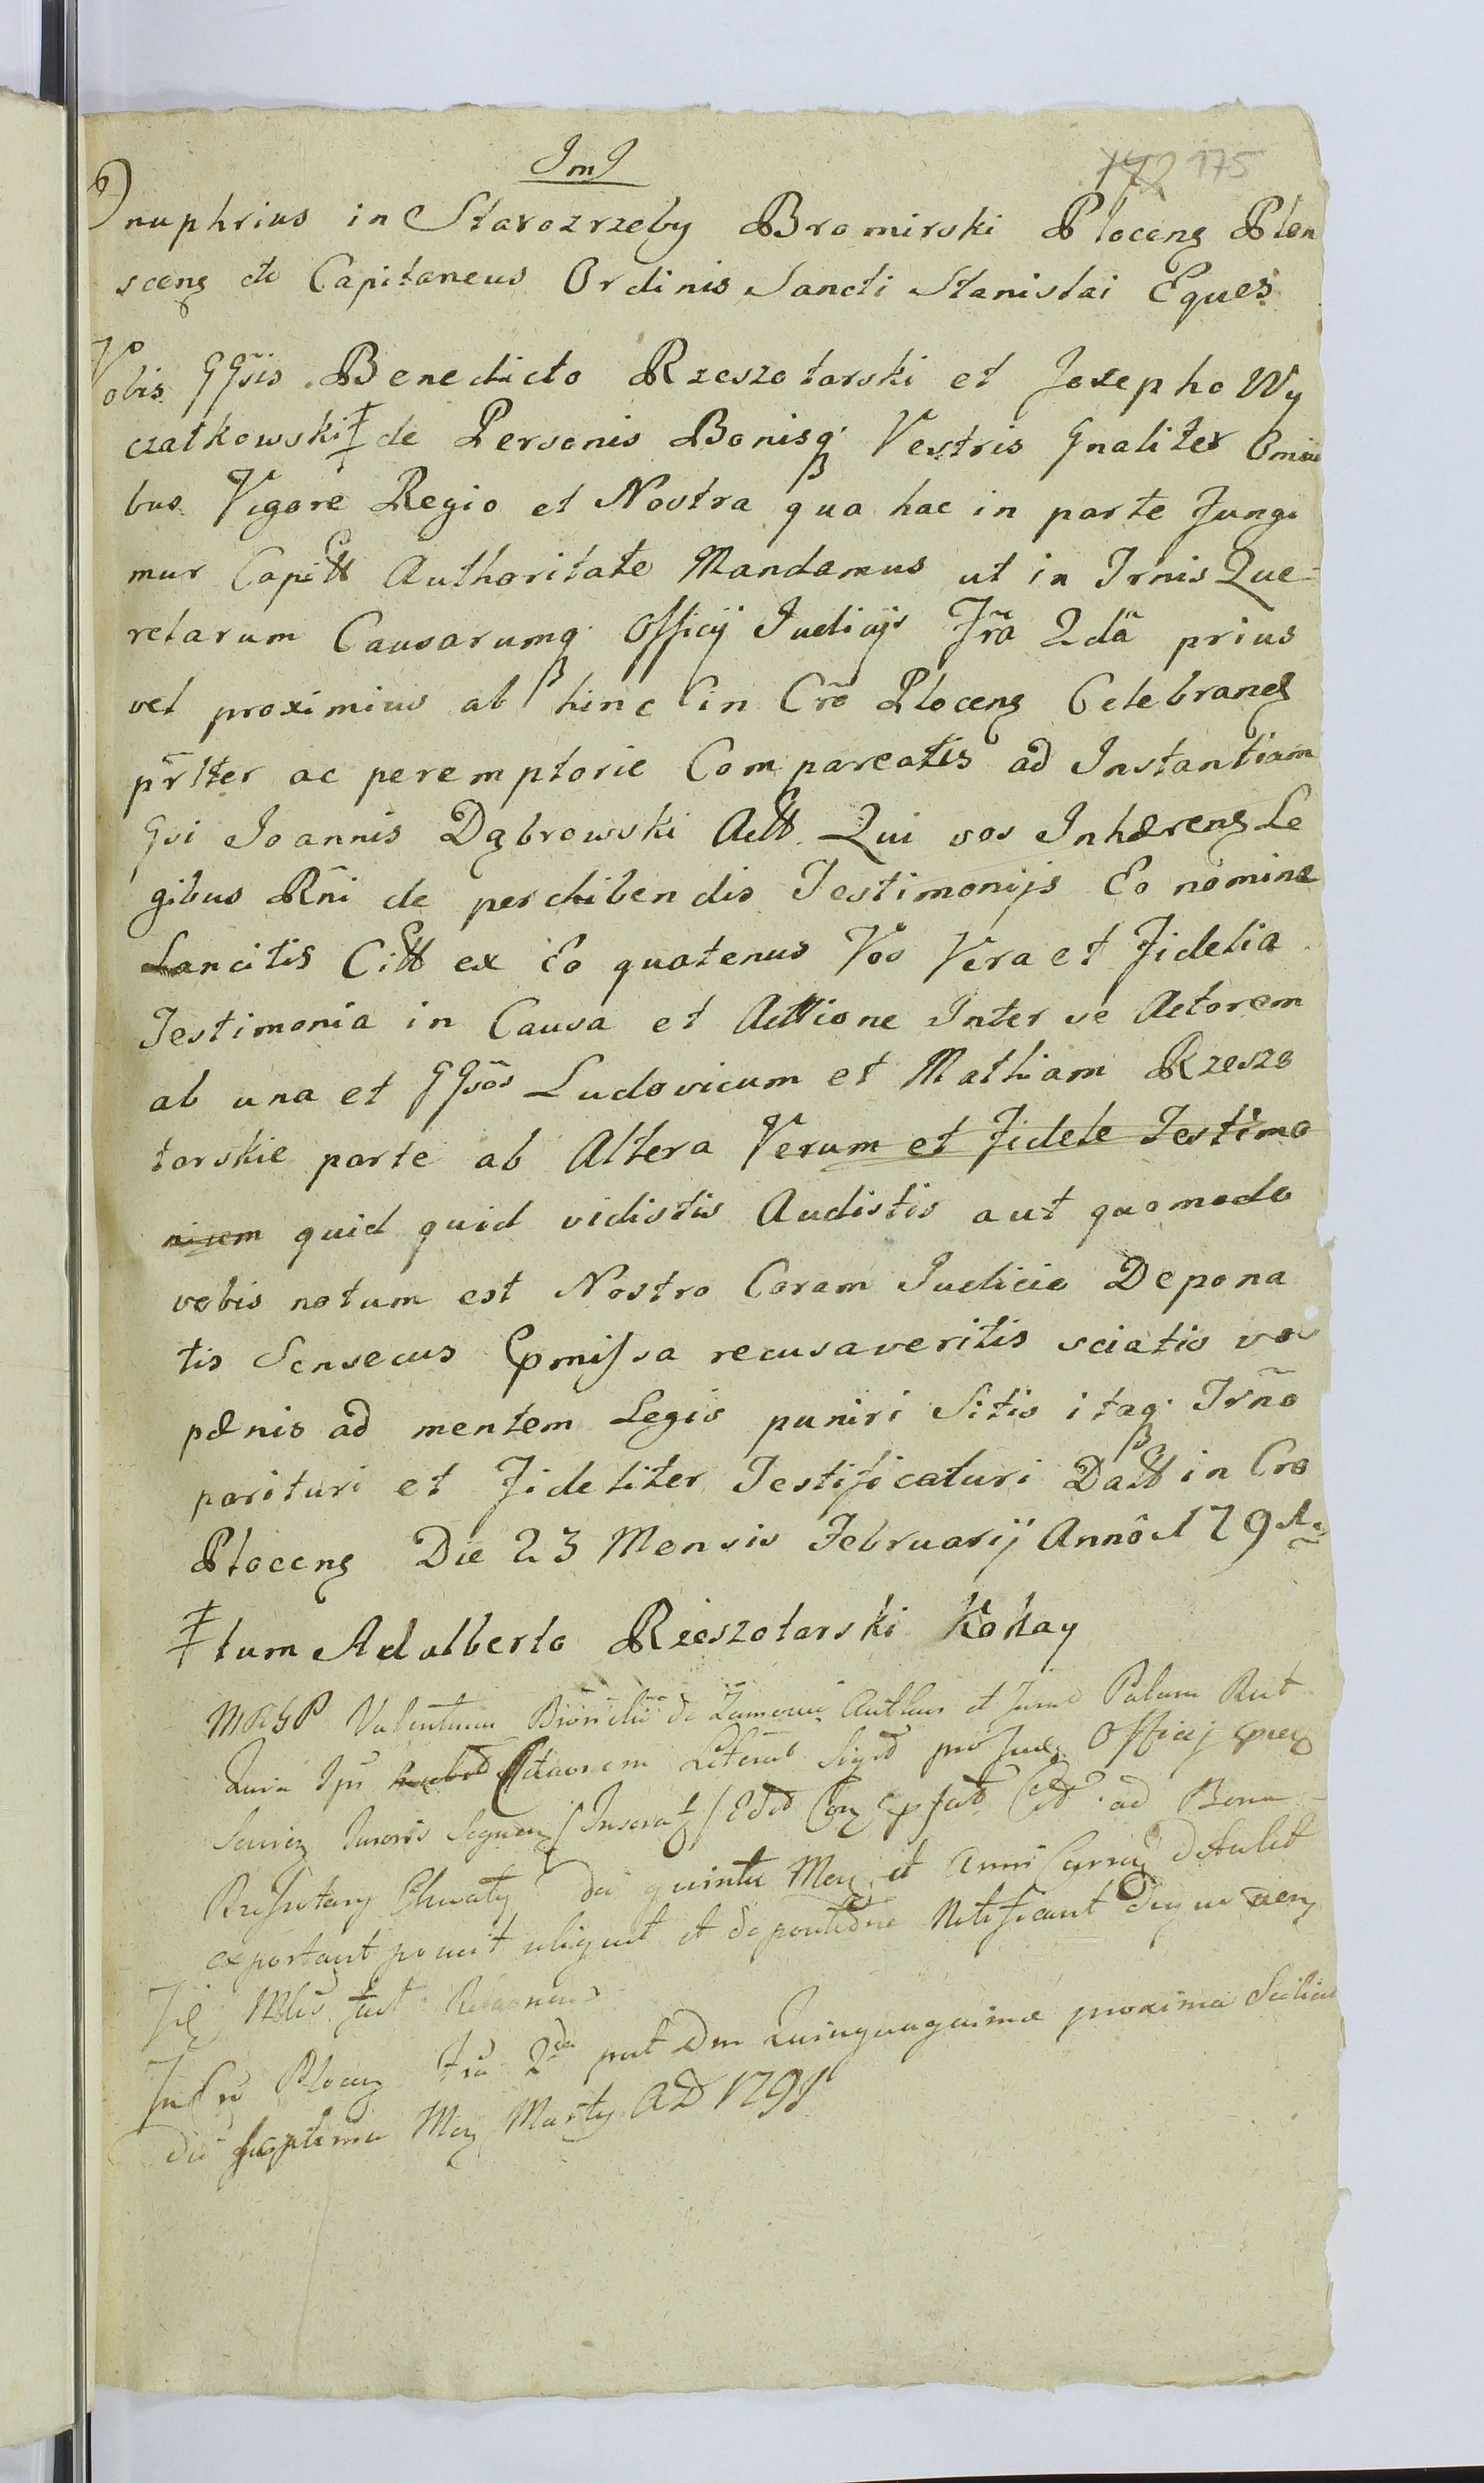 JmJ
172 175
Onuphrius in Starozrzeby Bromirski Płoceng Płon
sceng etc Capitaneus Ordinis Sancti Stanislai Eques
Vobis GGsis Benedicto Rzeszotarski et Josepho Wy
czałkowski ‡ de Personis Bonisq Vestris Gnaliter Omni
bus Vigore Regio et Nostra qua hac in parte Fungi
mur Capitt Authoritate Mandamus ut in Trnis Que=
relarum Causarumq Officij Judicijs Fra 2da prius
vel proximius ab hinc in Cro Płoceng Celebrand
prlter ac peremptorie Compareatis ad Instantiam
Gsi Joannis Dąbrowski Actt Qui vos Inhæreng Le
gibus Rni de perchibendis Testimonijs Eo nomine
Sancitis Citt ex Eo quatenus Vos Vera et Fidelia
Testimonia in Causa et Acttione Inter se Actorem
ab una et GGsos Ludovicum et Mathiam Rzeszo
tarskie parte ab Altera Verum et Fidele Testimo
nium quid quid vidistis Audistis aut quomodo
vobis notum est Nostro Coram Judicio Depona
tis Sensecus Epmissa recusaveritis sciatis vos
pænis ad mentem Legis puniri Sitis itaq Trno
parituri et Fideliter Testificaturi Datt in Cro
Płoceng Die 23 Mensis Februarij Anno 179
‡ tum Adalberto Rzeszotarski Kokay
MRGP Valentinus de Authen et Juras Palam Rut
Quia Ips Citaonem Literal Sigil pro Jud Officij
ad Bona
die quinta Men et Anni detulit
exportavit posuit reliquit et Notificavit
fecit Relaonem
In Cro Płoceng fra 2da post Dm Quinquagesimæ proxima Scilicet
die septima Men Martij AD 1791